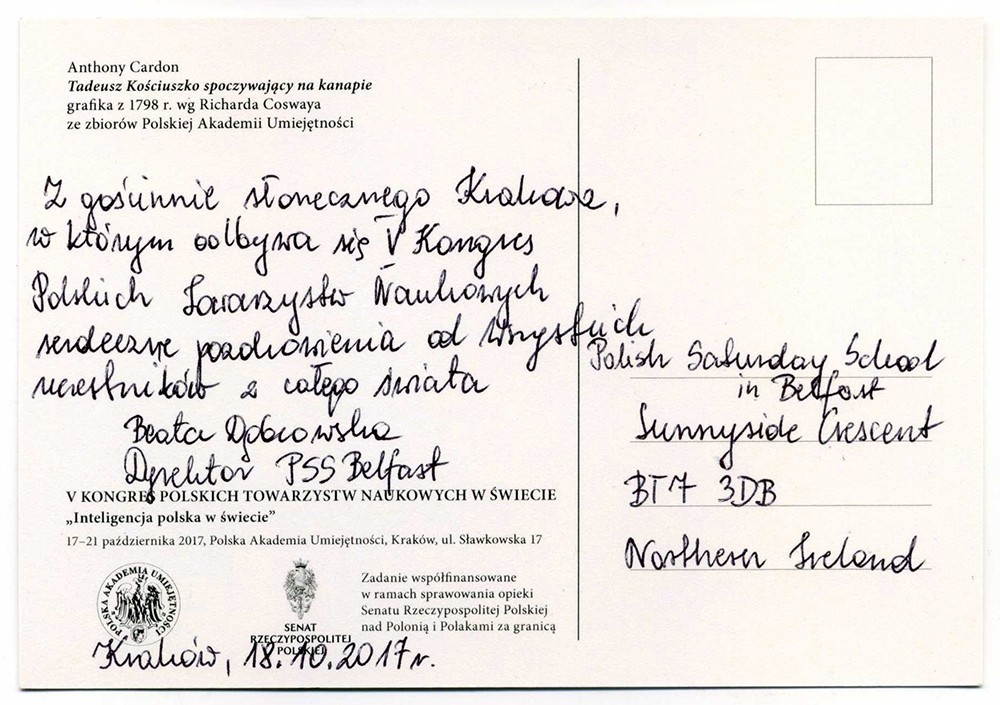 Anthony Cardon
Tadeusz Kościuszko spoczywający na kanapie
grafika z 1798 r. wg Richarda Coswaya
ze zbiorów Polskiej Akademii Umiejętności
Z gościnnie słonecznego Krakowa,
w którym odbywa się V Kongres
Polskich Towarzystw Naukowych
serdeczne pozdrowienia od wszystkich
uczestników z całego świata
Beata Dąbrowska
Dyrektor PSS Belfast
V KONGRES POLSKICH TOWARZYSTW NAUKOWYCH W ŚWIECIE
„Inteligencja polska w świecie”
17–21 października 2017, Polska Akademia Umiejętności, Kraków, ul. Sławkowska 17
POLSKA AKADEMIA UMIEJĘTNOŚCI
SENAT
RZECZYPOSPOLITEJ
POLSKIEJ
Zadanie współfinansowane
w ramach sprawowania opieki
Senatu Rzeczypospolitej Polskiej
nad Polonią i Polakami za granicą
Kraków, 18.10.2017 r.
Polish Saturday School
in Belfast
Sunnyside Crescent
BT7 3DB
Northern Ireland